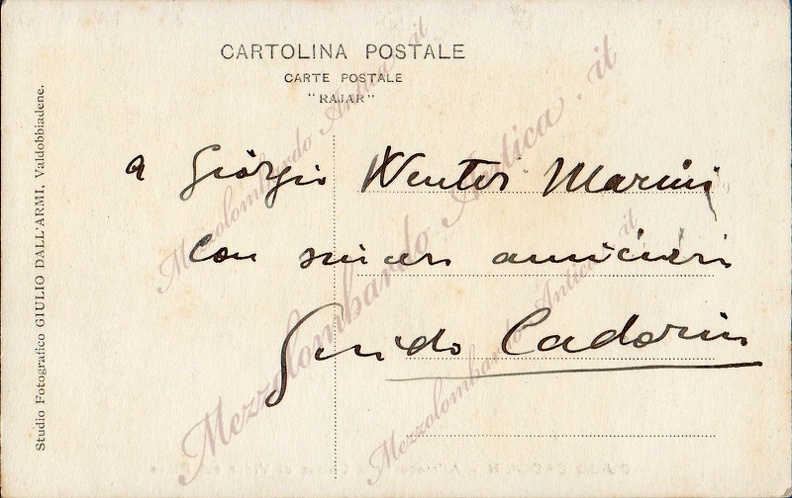 CARTOLINA POSTALE
CARTE POSTALE
"RAJAR"
a Giorgio Wenter Marini
con sincera amicizia
Guido Cadorin
Studio Fotografico GIULIO DALL'ARMI, Valdobbiadene.
Mezzolombardo Antica.it
Mezzolombardo Antica.it
Mezzolombardo Antica.it